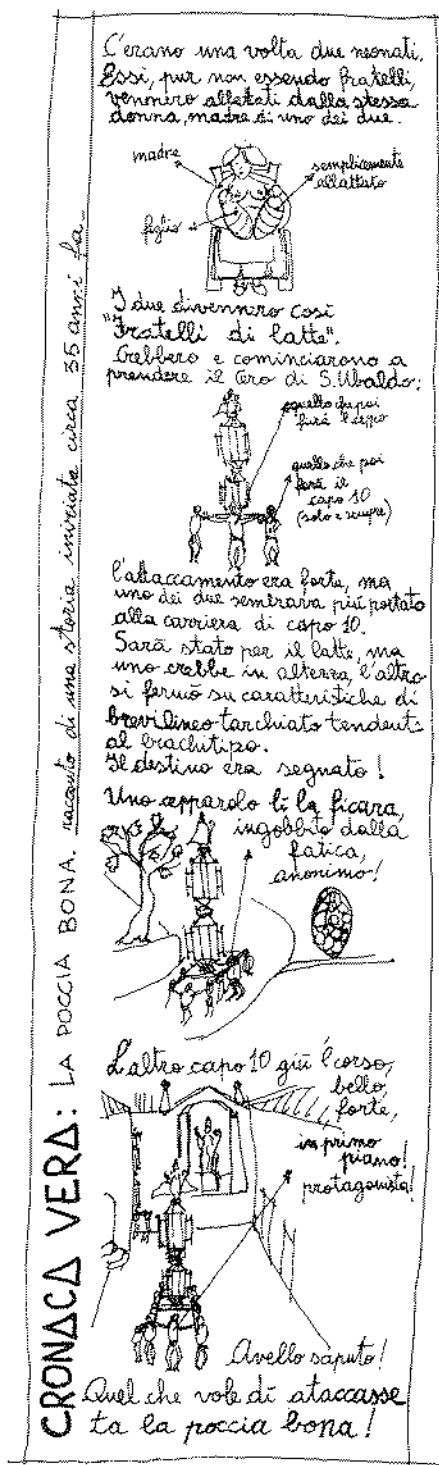 CRONACA VERA: LA POCCIA BONA. racconto di una storia iniziata circa 35 anni fa.
C'erano una volta due neonati.
Essi, pur non essendo fratelli,
vennero allattati dalla stessa
donna, madre di uno dei due.
madre
semplicemente
allattato
figlio
I due divennero così
"Fratelli di latte".
Crebbero e cominciarono a
prendere il Cero di S. Ubaldo:
quello che poi
farà l ceppo
quello che poi
farà il
capo 10
(solo e sempre)
l'attaccamento era forte, ma
uno dei due sembrava più portato
alla carriera di capo 10.
Sarà stato per il latte, ma
uno crebbe in altezza, l'altro
si fermò su caratteristiche di
brevilineo tarchiato tendente
al brachitipo.
Il destino era segnato!
Uno cepparolo lì la ficara,
ingobbito dalla
fatica,
anonimo!
L'altro capo 10 giù l corso,
bello,
forte,
in primo
piano!
protagonista!
Avello saputo!
Quel che vole dì ataccasse
ta la poccia bona!